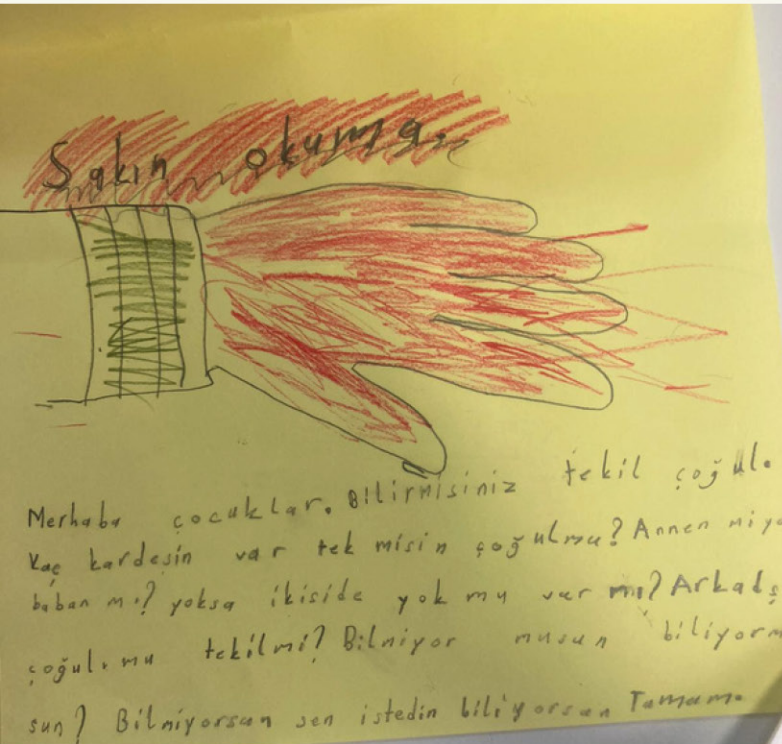 Sakın okuma
Merhaba çocuklar. Bilirmisiniz tekil çoğul.
Kaç kardeşin var tek misin çoğulmu? Annen miyo
baban mı? yoksa ikiside yok mu var mı? Arkadş
çoğul.mu tekilmi? Bilniyor musun biliyorm
sun? Bilmiyorsan sen istedin biliyorsan Tamam.